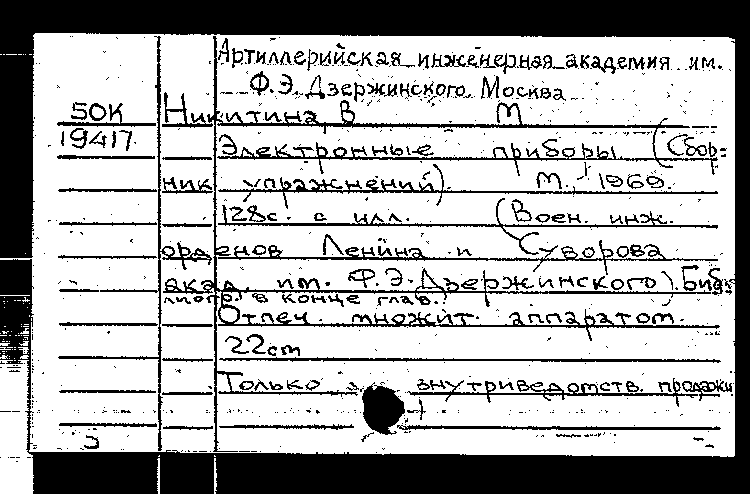 Артиллерийская инженерная академия им.
Ф.Э. Дзержинского. Москва
50К Никитина, В М
19417 Электронные приборы. (Сбор=
ник упражнений). М., 1969.
128с. с илл. (Воен. инж.
орденов Ленина и Суворова
акад. им. Ф.Э.Дзержинского). Биб-
лиогр. в конце глав.
Отпеч. множит. аппаратом.
22cm
Только внутриведомств. продажи